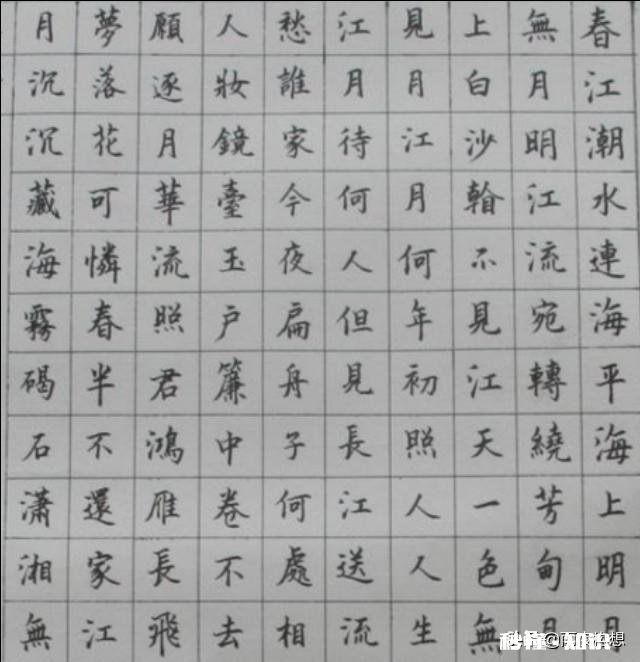 春江潮水連海平海上明月
無月明江流宛轉繞芳甸月
上白沙翰不見江天一色無
見月江月何年初照人人生
江月待何人但見長江送流
愁誰家今夜扁舟子何處相
人妝鏡臺玉戶簾中卷不去
願逐月華流照君鴻雁長飛
夢落花可憐春半不還家江
月沉沉藏海霧碣石瀟湘無